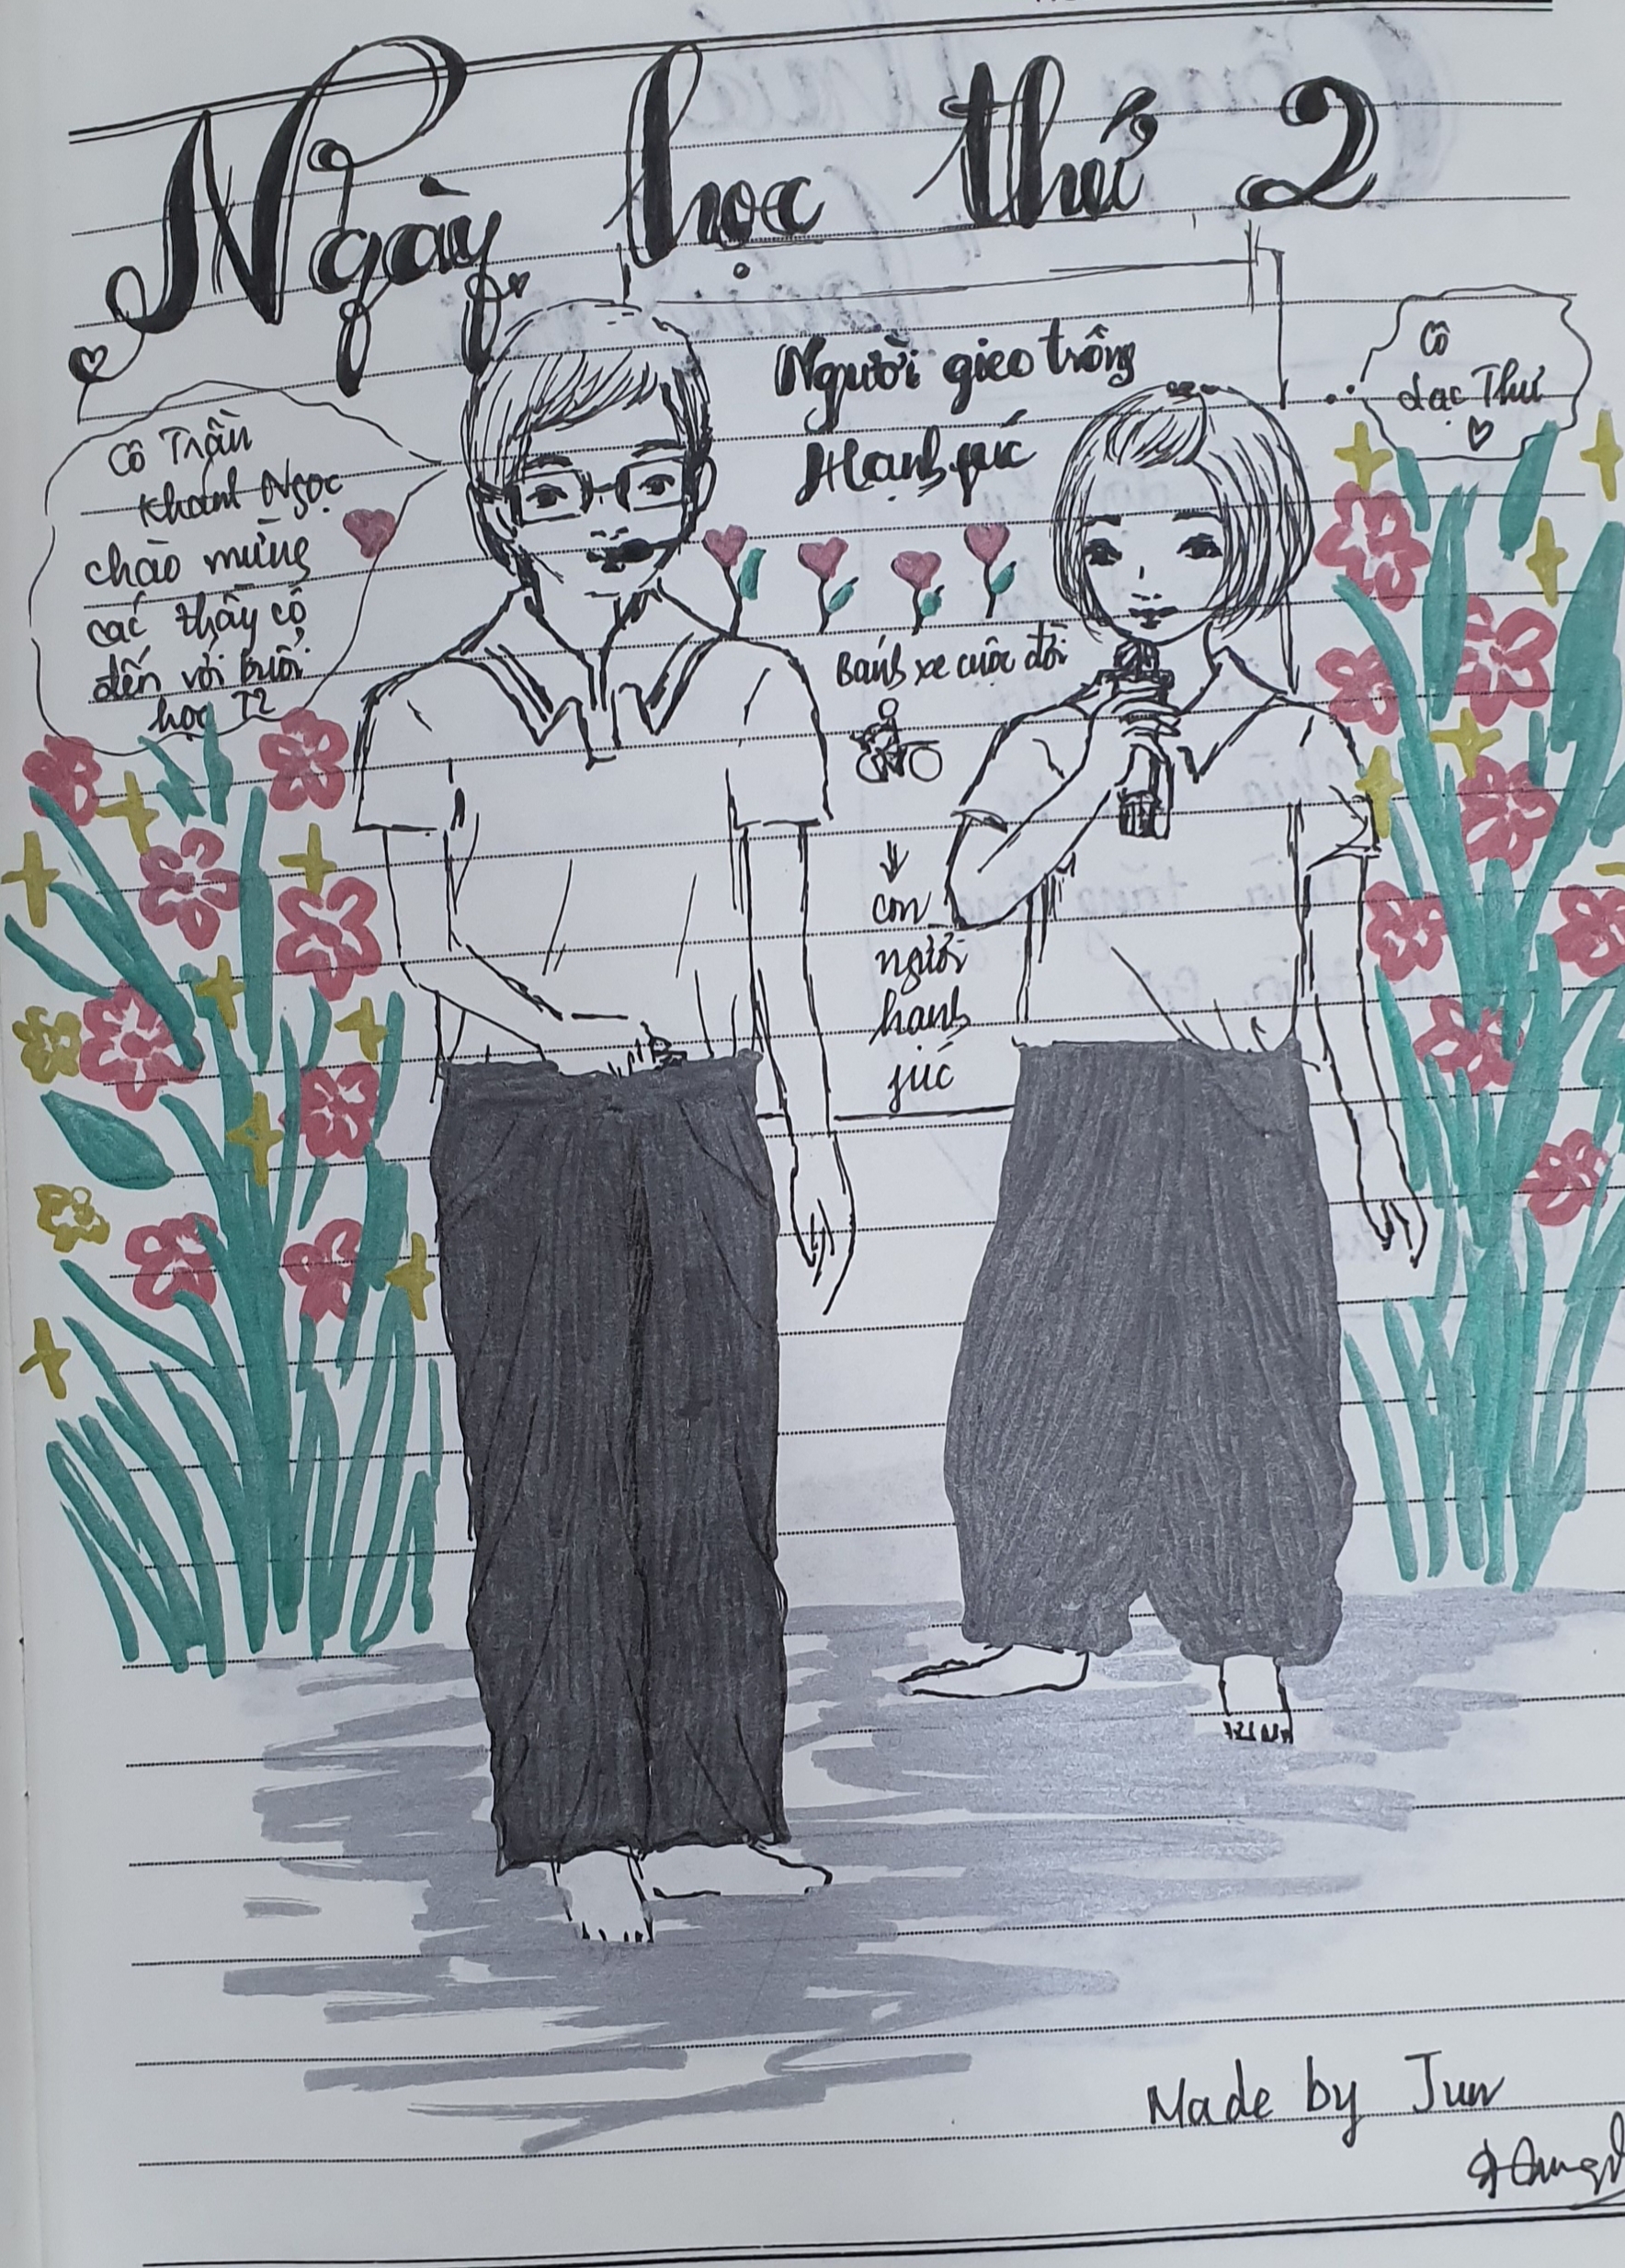 Ngày học thứ 2
Người gieo trồng
Hạnh fúc
Cô
dạc Thư
Cô Trần
Khánh Ngọc
chào mừng
các thầy cô
đến với buổi
học T2
Bánh xe cuộc đời
con
người
hạnh
fúc
Made by Jun